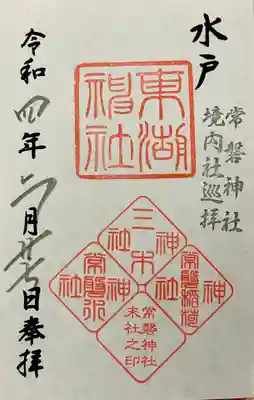 水戸
常磐神社
境内社巡拝
東湖
神社
三木
神社
常磐稲荷
神社
常磐水
神社
常磐神社
末社之印
令和四年 月 日奉拝